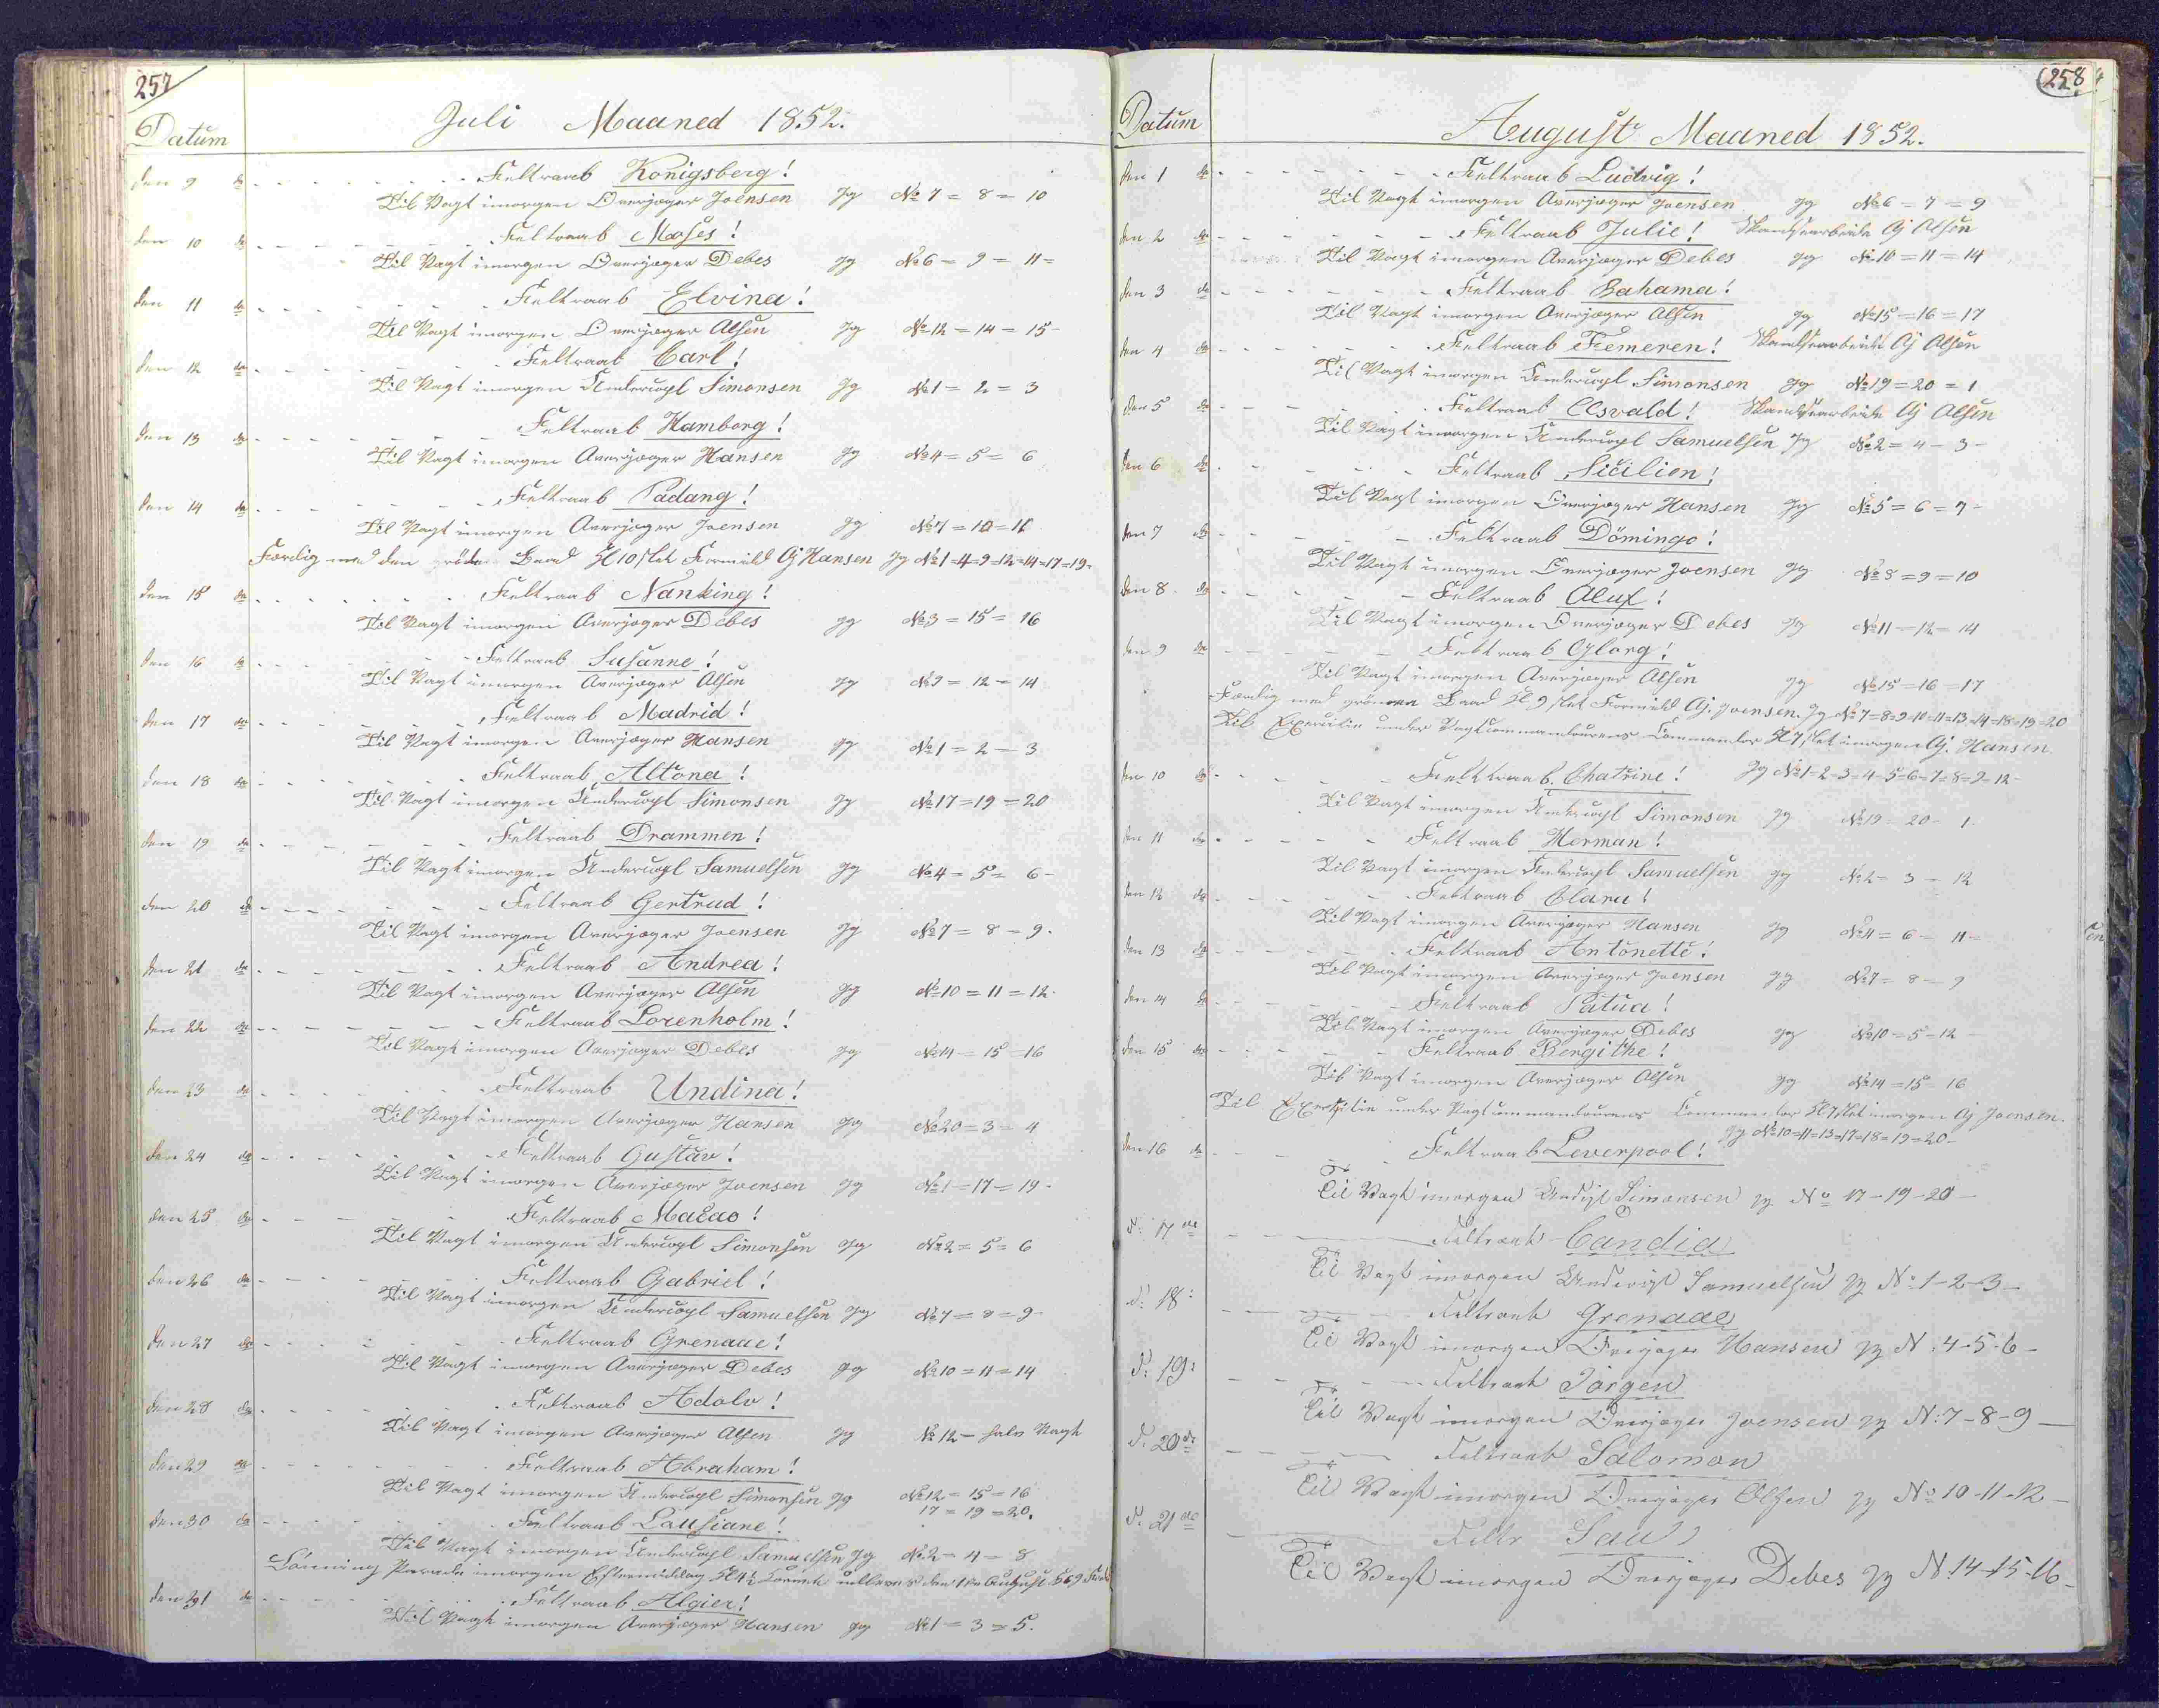 257
Datum
Juli Maaned 1852.
den 9 do Feltraab Königsberg!
Til Vagt imorgen Overjæger Joensen Jg No 7 = 8 = 10
den 10 do Feltraab Moses!
Til Vagt imorgen Overjæger Debes Jg No 6 = 9 = 11 =
den 11 do Feltraab Elvina!
Til Vagt imorgen Overjæger Olsen Jg No 12 = 14 = 15 -
den 12 do Feltraab Carl!
Til Vagt imorgen Simonsen Jg No 1 = 2 = 3
den 13 do Feltraab Hamborg!
Til Vagt imorgen Overjæger Hansen Jg No 4 = 5 = 6
den 14 do Feltraab Padang!
Til Vagt imorgen Overjæger Joensen Jg No 7 = 10 = 11
Færdig med den røde Baad Kl 10 slet Formidd Oj Hansen Jg No 1=4=9=12=14=17=19=
den 15 do Feltraab Nanking!
Til Vagt imorgen Overjæger Debes Jg No 3 = 15 = 16
den 16 do Feltraab Susanne!
Til Vagt imorgen Overjæger Olsen Jg No 9 = 12 = 14
den 17 do Feltraab Madrid!
Til Vagt imorgen Overjæger Hansen Jg No 1 = 2 = 3
den 18 do Feltraab Altona!
Til Vagt imorgen Simonsen Jg No 17 = 19 = 20
den 19 do Feltraab Drammen!
Til Vagt imorgen Samuelsen Jg No 4 = 5 = 6 -
den 20 do Feltraab Gertrud!
Til Vagt imorgen Overjæger Joensen Jg No 7 = 8 = 9.
den 21 do Feltraab Andrea!
Til Vagt imorgen Overjæger Olsen Jg No 10 = 11 = 12.
den 22 do Feltraab Lorenholm!
Til Vagt imorgen Overjæger Debes Jg No 14 = 15 = 16
den 23 do Feltraab Undina!
Til Vagt imorgen Overjæger Hansen Jg No 20 = 3 = 4
den 24 do Feltraab Gustav!
Til Vagt imorgen Overjæger Joensen Jg No 1 = 17 = 19 -
den 25 do Feltraab Macao!
Til Vagt imorgen Simonsen Jg No 2 = 5 = 6
den 26 do Feltraab Gabriel!
Til Vagt imorgen Samuelsen Jg No 7 = 8 = 9
den 27 do Feltraab Grenade!
Til Vagt imorgen Overjæger Debes Jg No 10 = 11 = 14
den 28 do Feltraab Adolv!
Til Vagt imorgen Overjæger Olsen Jg No 12 - halv Vagt
den 29 do Feltraab Abraham!
Til Vagt imorgen Simonsen Jg No 12 = 15 = 16
17 = 19 = 20.
den 30 do Feltraab Lousiane!
Til Vagt imorgen Samuelsen Jg No 2 = 4 = 8
Lönning Parade imorgen Eftermiddag Kl 4½ den 1ste August
den 31 do Feltraab Algier!
Til Vagt imorgen Overjæger Hansen Jg No 1 = 3 = 5.
258
Datum
August Maaned 1852.
den 1 do Feltraab Ludvig!
Til Vagt imorgen Overjæger Joensen Jg No 6 = 7 = 9
den 2 do Feltraab Julie! Skandsearbeide Oj Olsen
Til Vagt imorgen Overjæger Debes Jg No 10 = 11 = 14
den 3 do Feltraab Bahama!
Til Vagt imorgen Overjæger Olsen Jg No 15 = 16 = 17
den 4 do Feltraab Femeren! Skandsearbeide Oj Olsen
Til Vagt imorgen Simonsen Jg No 19 = 20 = 1
den 5 do Feltraab Osvald! Skandsearbeide Oj Olsen
Til Vagt imorgen Samuelsen Jg No 2 = 4 - 3 -
den 6 do Feltraab Sicilien!
Til Vagt imorgen Overjæger Hansen Jg No 5 = 6 = 7 -
den 7 do Feltraab Domingo!
Til Vagt imorgen Overjæger Joensen Jg No 8 = 9 = 10
den 8 do Feltraab Aluf!
Til Vagt imorgen Overjæger Debes Jg No 11 = 12 = 14
den 9 do Feltraab Georg!
Til Vagt imorgen Overjæger Olsen Jg No 15 = 16 = 17
Færdig med grönnen Baad Kl 9 slet Formidd Oj. Joensen. Jg No 7=8=9=10=11=13=14=18=19=20
Til Exersitie under Vagtcommandeurens Commandor Kl 7 slet imorgen Oj. Hansen.
den 10 do Feltraab Chatrine! Jg No 1=2=3=4=5=6=7=8=9=12-
Til Vagt imorgen Simonsen Jg No 19 = 20 - 1
den 11 do Feltraab Herman!
Til Vagt imorgen Samuelsen Jg No 2 = 3 = 12
den 12 do Feltraab Clara!
Til Vagt imorgen Overjæger Hansen Jg No 4 = 6 = 11 -
den 13 do Feltraab Antonette!
Til Vagt imorgen Overjæger Joensen Jg No 7 = 8 = 9
den 14 do Feltraab Patua!
Til Vagt imorgen Overjæger Debes Jg No 10 = 5 = 12
den 15 do Feltraab Bergithe!
Til Vagt imorgen Overjæger Olsen Jg No 14 = 15 = 16
Til Exersitie under Vagtcommandeurens Commandor Kl 7 slet imorgen Oj Joensen.
Jg No 10=11=13=17=18=19=20-
den 16 do Feltraab Leverpool!
Til Vagt imorgen Simonsen Jg No 17 - 19 - 20 -
d: 17 de Feltraab Candia
Til Vagt imorgen Samuelsen Jg No 1 - 2 - 3 -
d: 18: Feltraab Grenade
Til Vagt imorgen Overjæger Hansen Jg N: 4 - 5 - 6 -
d: 19: Feltraab Jörgen
Til Vagt imorgen Overjæger Joensen Jg N: 7 - 8 - 9 -
d. 20 de Feltraab Salomon
Til Vagt imorgen Overjæger Olsen Jg No 10 - 11 - 12 -
d. 21 de Feltr Saul
Til Vagt imorgen Overjæger Debes Jg N. 14 - 15 - 16 -